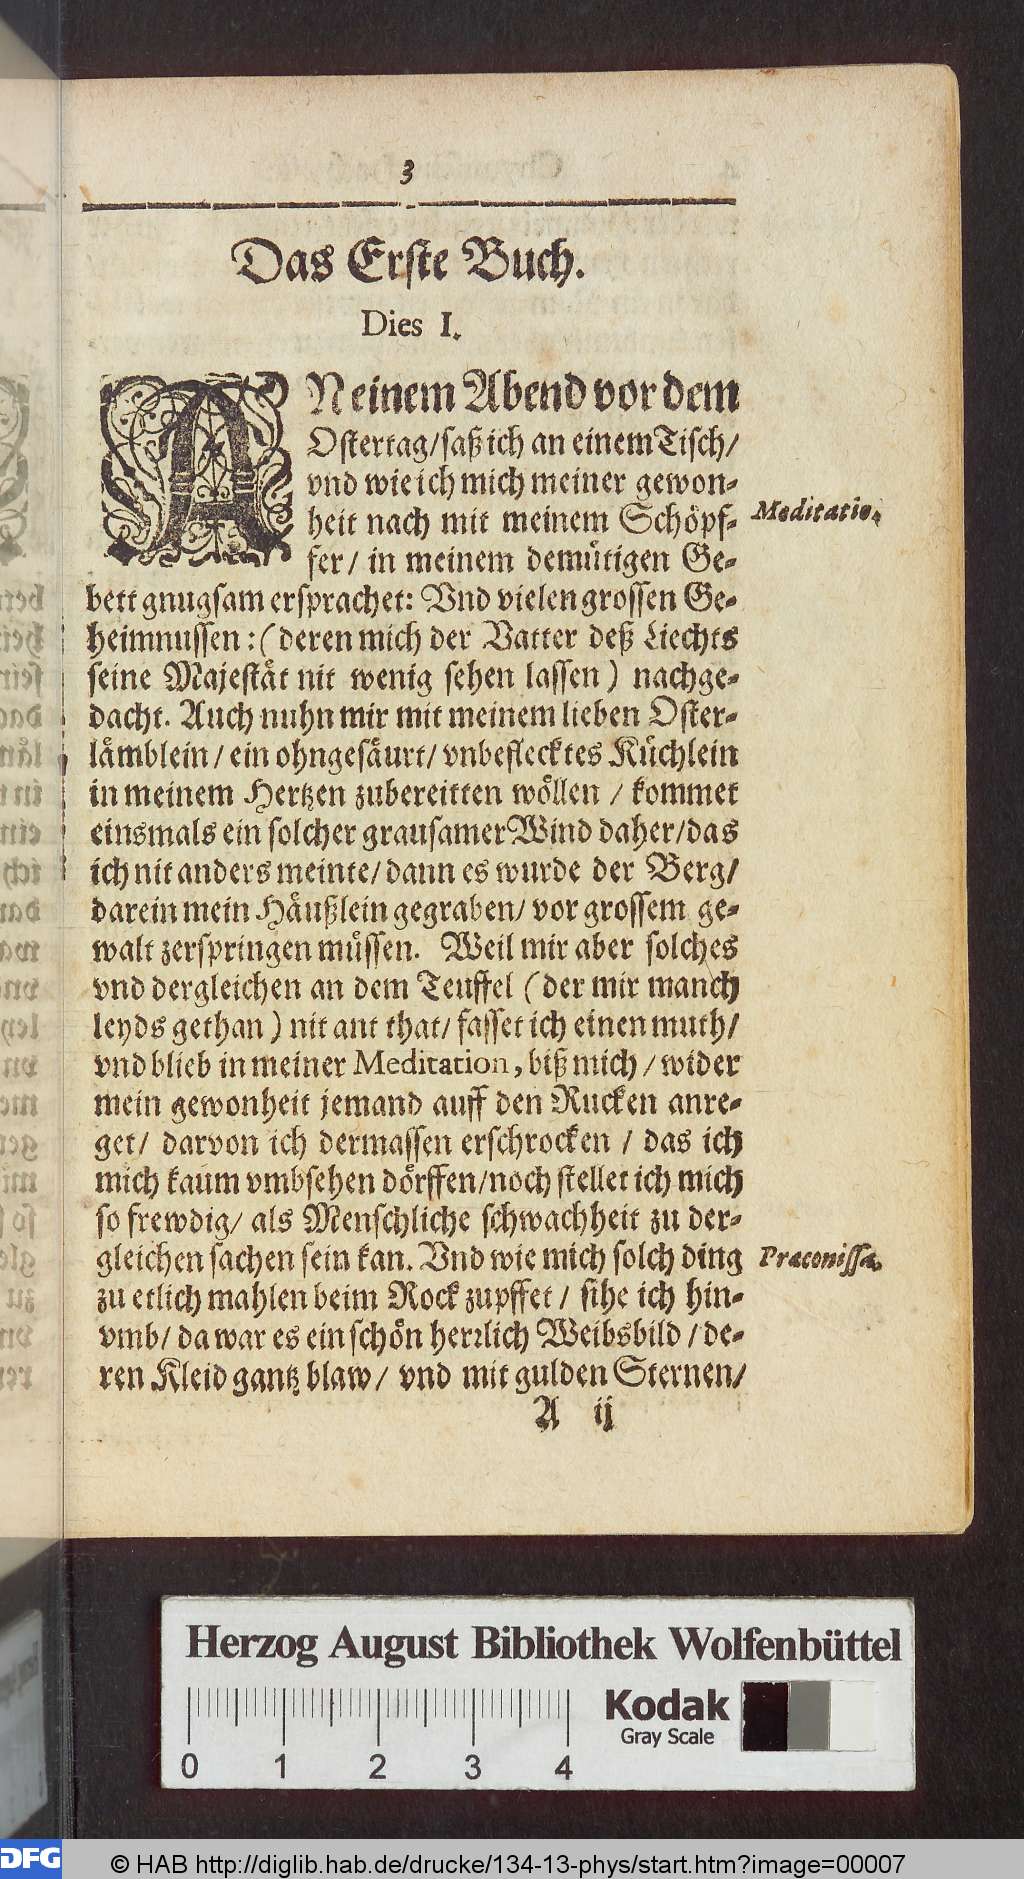 3
Das Erste Buch.
Dies I.
ANeinem Abend vor dem
Ostertag/ saß ich an einem Tisch/
vnd wie ich mich meiner gewon-
heit nach mit meinem Schöpf-
Meditatio.
fer/ in meinem demütigen Ge-
bett gnugsam ersprachet: Vnd vielen grossen Ge-
heimnussen: (deren mich der Vatter deß Liechts
seine Majestät nit wenig sehen lassen) nachge-
dacht. Auch nuhn mir mit meinem lieben Oster-
lämblein/ ein ohngesäurt/ vnbeflecktes Küchlein
in meinem Hertzen zubereitten wöllen / kommet
einsmals ein solcher grausamer Wind daher/ das
ich nit anders meinte/ dann es wurde der Berg/
darein mein Häußlein gegraben/ vor grossem ge-
walt zerspringen müssen. Weil mir aber solches
vnd dergleichen an dem Teuffel (der mir manch
leyds gethan) nit ant that/ fasset ich einen muth/
vnd blieb in meiner Meditation, biß mich / wider
mein gewonheit jemand auff den Rucken anre-
get/ darvon ich dermassen erschrocken / das ich
mich kaum vmbsehen dörffen/ noch stellet ich mich
so frewdig/ als Menschliche schwachheit zu der-
gleichen sachen sein kan. Vnd wie mich solch ding
Præconissa.
zu etlich mahlen beim Rock zupffet / sihe ich hin-
vmb/ da war es ein schön herrlich Weibsbild / de-
ren Kleid gantz blaw/ vnd mit gulden Sternen/
A ij
Herzog August Bibliothek Wolfenbüttel
Kodak
Gray Scale
0 1 2 3 4
DFG
© HAB http://diglib.hab.de/drucke/134-13-phys/start.htm?image=00007